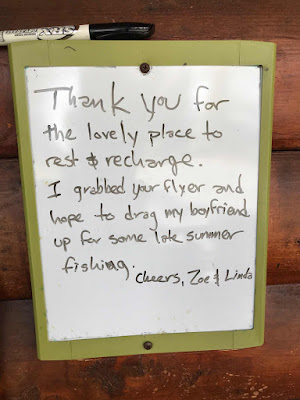 Thank you for
the lovely place to
rest & recharge.
I grabbed your flyer and
hope to drag my boyfriend
up for some late summer
fishing.
Cheers, Zoe & Linda